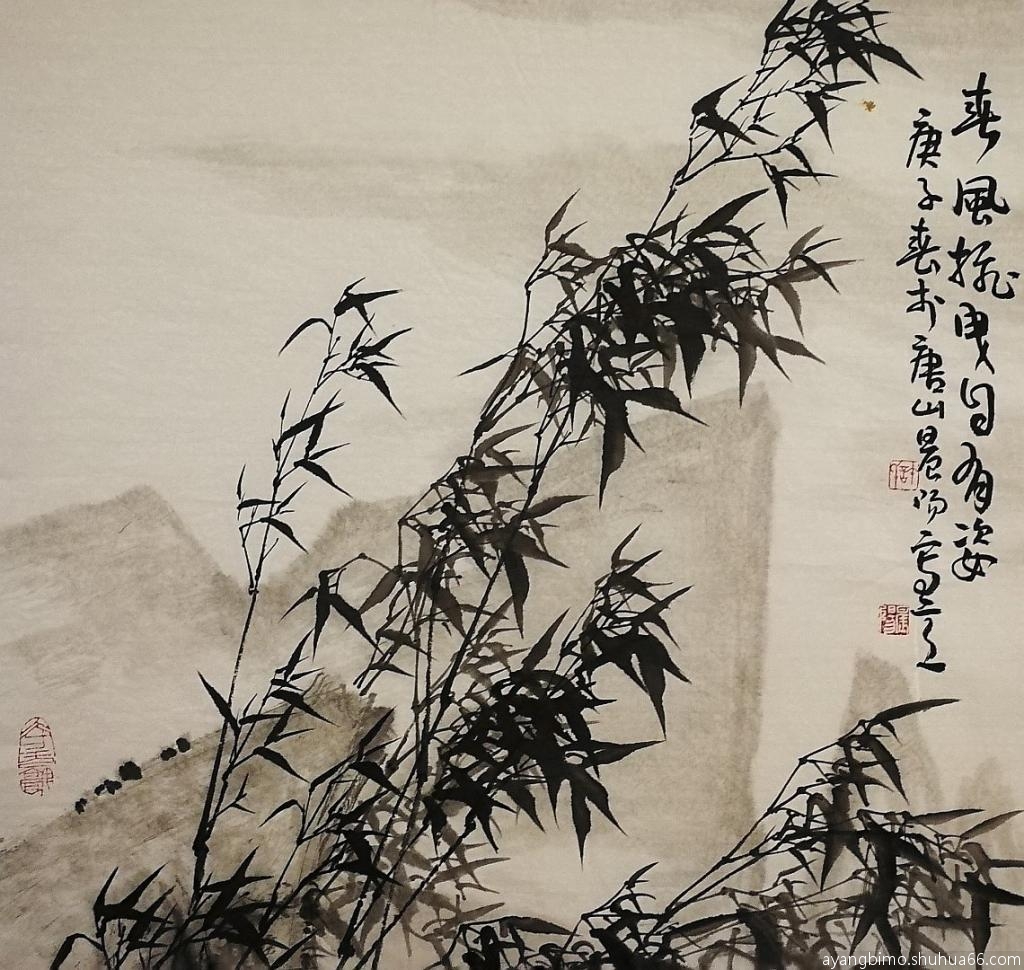 春風搖曳自有姿
庚子春於唐山晨陽寫之
ayangbimo.shuhua66.com